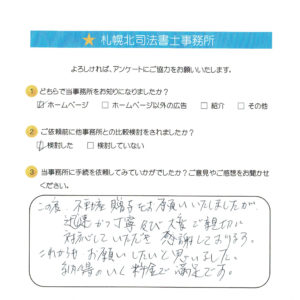 ★ 札幌北司法書士事務所
よろしければ、アンケートにご協力をお願いいたします。
1 どちらで当事務所をお知りになりましたか?
☑ ホームページ □ ホームページ以外の広告 □ 紹介 □ その他
2 ご依頼前に他事務所との比較検討をされましたか?
☑ 検討した □ 検討していない
3 当事務所に手続を依頼してみていかがでしたか?ご意見やご感想をお聞かせ
ください。
この度、不動産贈与をお願いいたしましたが
迅速かつ丁寧及び大変ご親切に
対応していただき感謝しております。
これからもお願いしたいと思いました。
納得のいく料金で満足です。